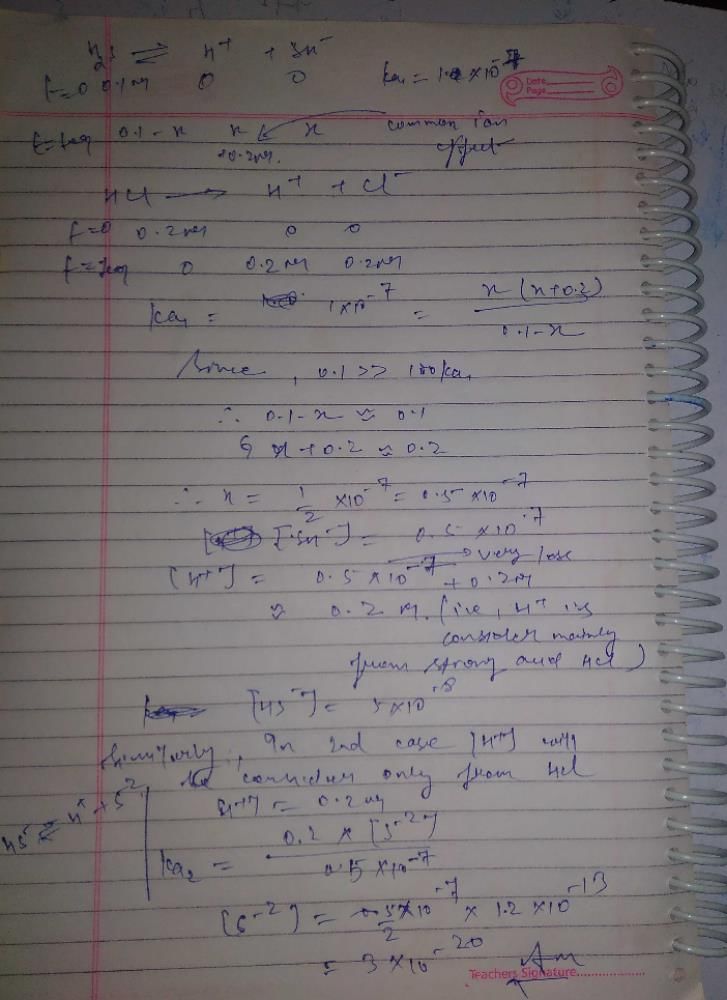 H2S ⇌ H+ + SH-
t=0 0.1M 0 0 Ka1 = 1.0×10-7
Date
Page
t=teq 0.1-x x x common ion
+0.2M. effect
HCl → H+ + Cl-
t=0 0.2M 0 0
t=teq 0 0.2M 0.2M
Ka1 = 1×10-7 = x(x+0.2)
0.1-x
Since, 0.1 >> 100Ka1
∴ 0.1-x ≈ 0.1
& x+0.2 ≈ 0.2
∴ x = 1/2 ×10-7 = 0.5×10-7
[SH-] = 0.5×10-7
→ very less
[H+] = 0.5×10-7 + 0.2M
≈ 0.2M. (i.e, H+ is
consider mainly
from strong acid HCl)
[HS-] = 5×10-8
Similarly, In 2nd case [H+] will
be consider only from HCl
HS- ⇌ H+ + S-2
[H+] = 0.2M
Ka2 = 0.2 × [S-2]
0.5×10-7
[S-2] = 0.5×10-7 × 1.2×10-13
2
= 3×10-20 Ans
Teachers Signature